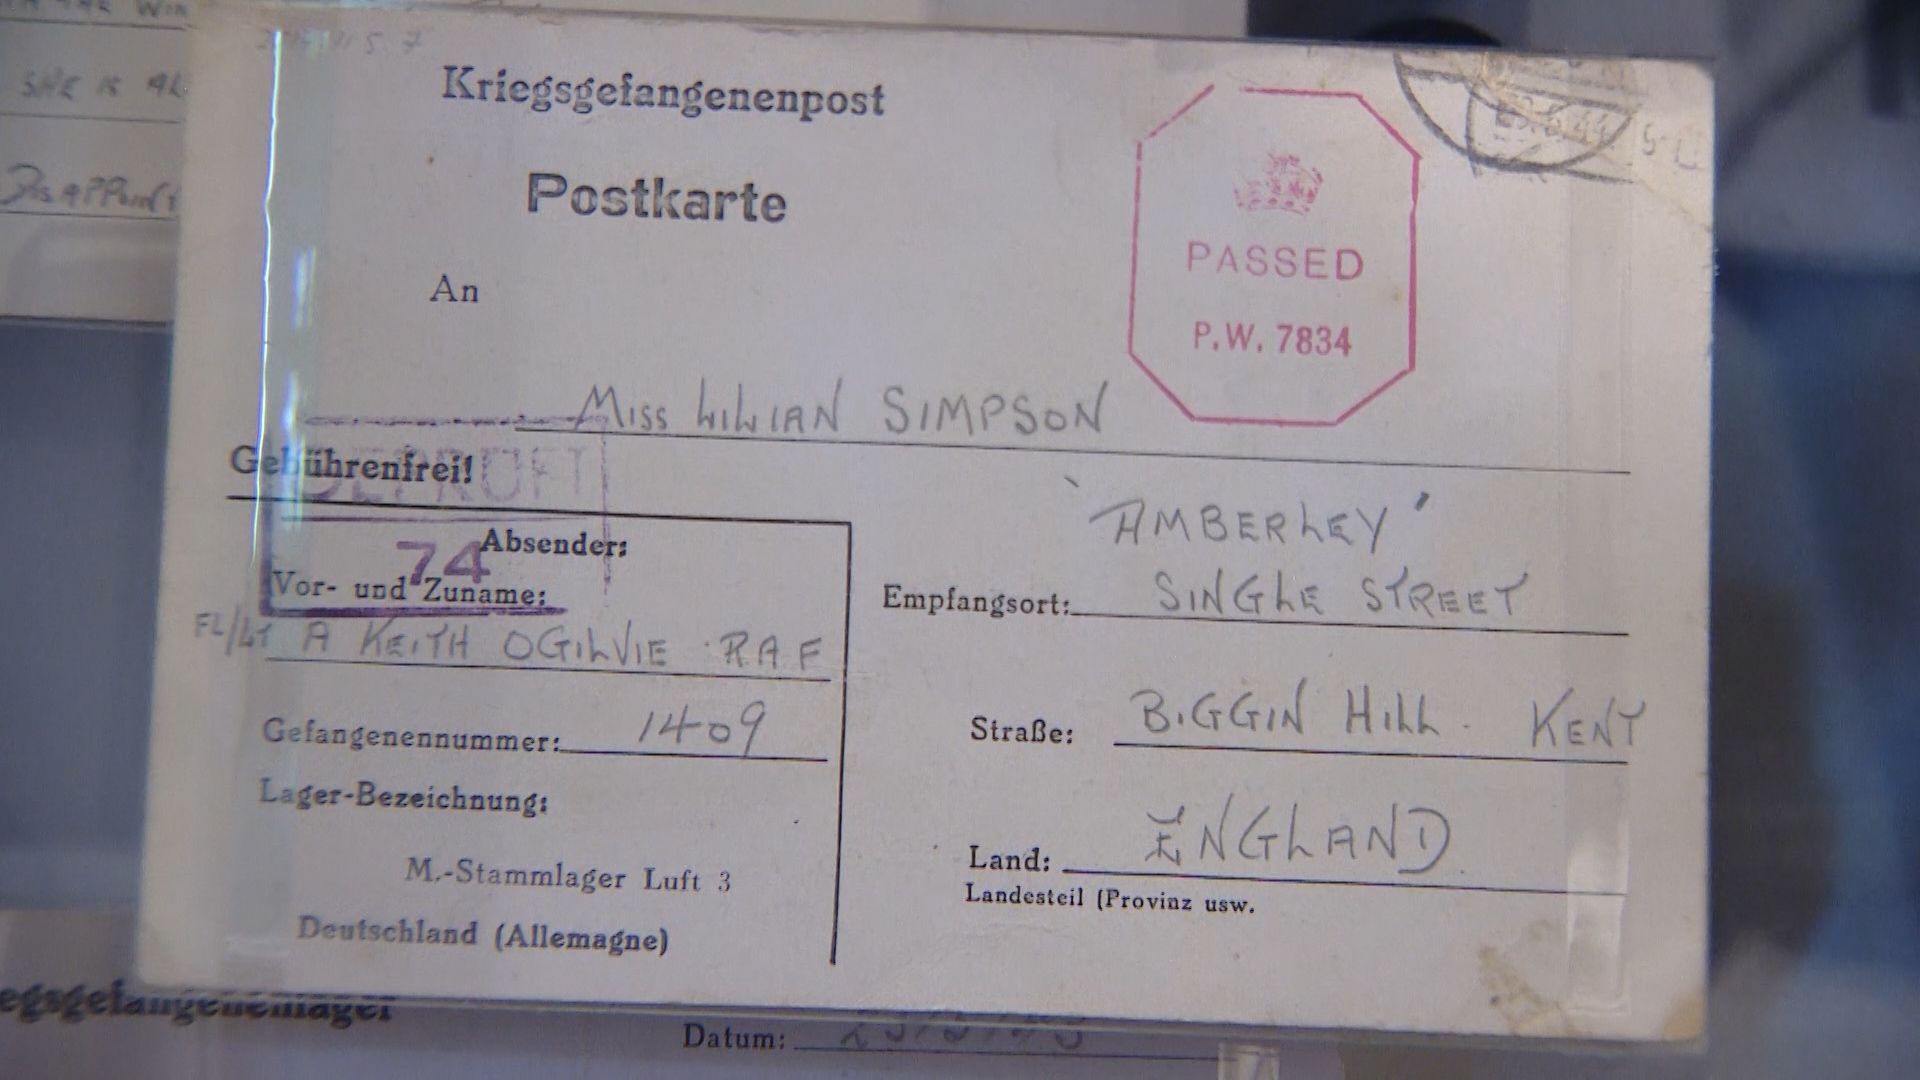 SHE IS
Kriegsgefangenenpost
Postkarte
PASSED
P.W. 7834
An
Miss LILLIAN SIMPSON
Gebührenfrei!
GEPRÜFT
74
'AMBERLEY'
Absender:
Vor- und Zuname:
FL/LT A KEITH OGILVIE RAF
Empfangsort: SINGLE STREET
Gefangenennummer: 1409
Straße: BIGGIN HILL. KENT
Lager-Bezeichnung:
M.-Stammlager Luft 3
Land: ENGLAND
Landesteil (Provinz usw.
Deutschland (Allemagne)
egsgefangenenlager
Datum: